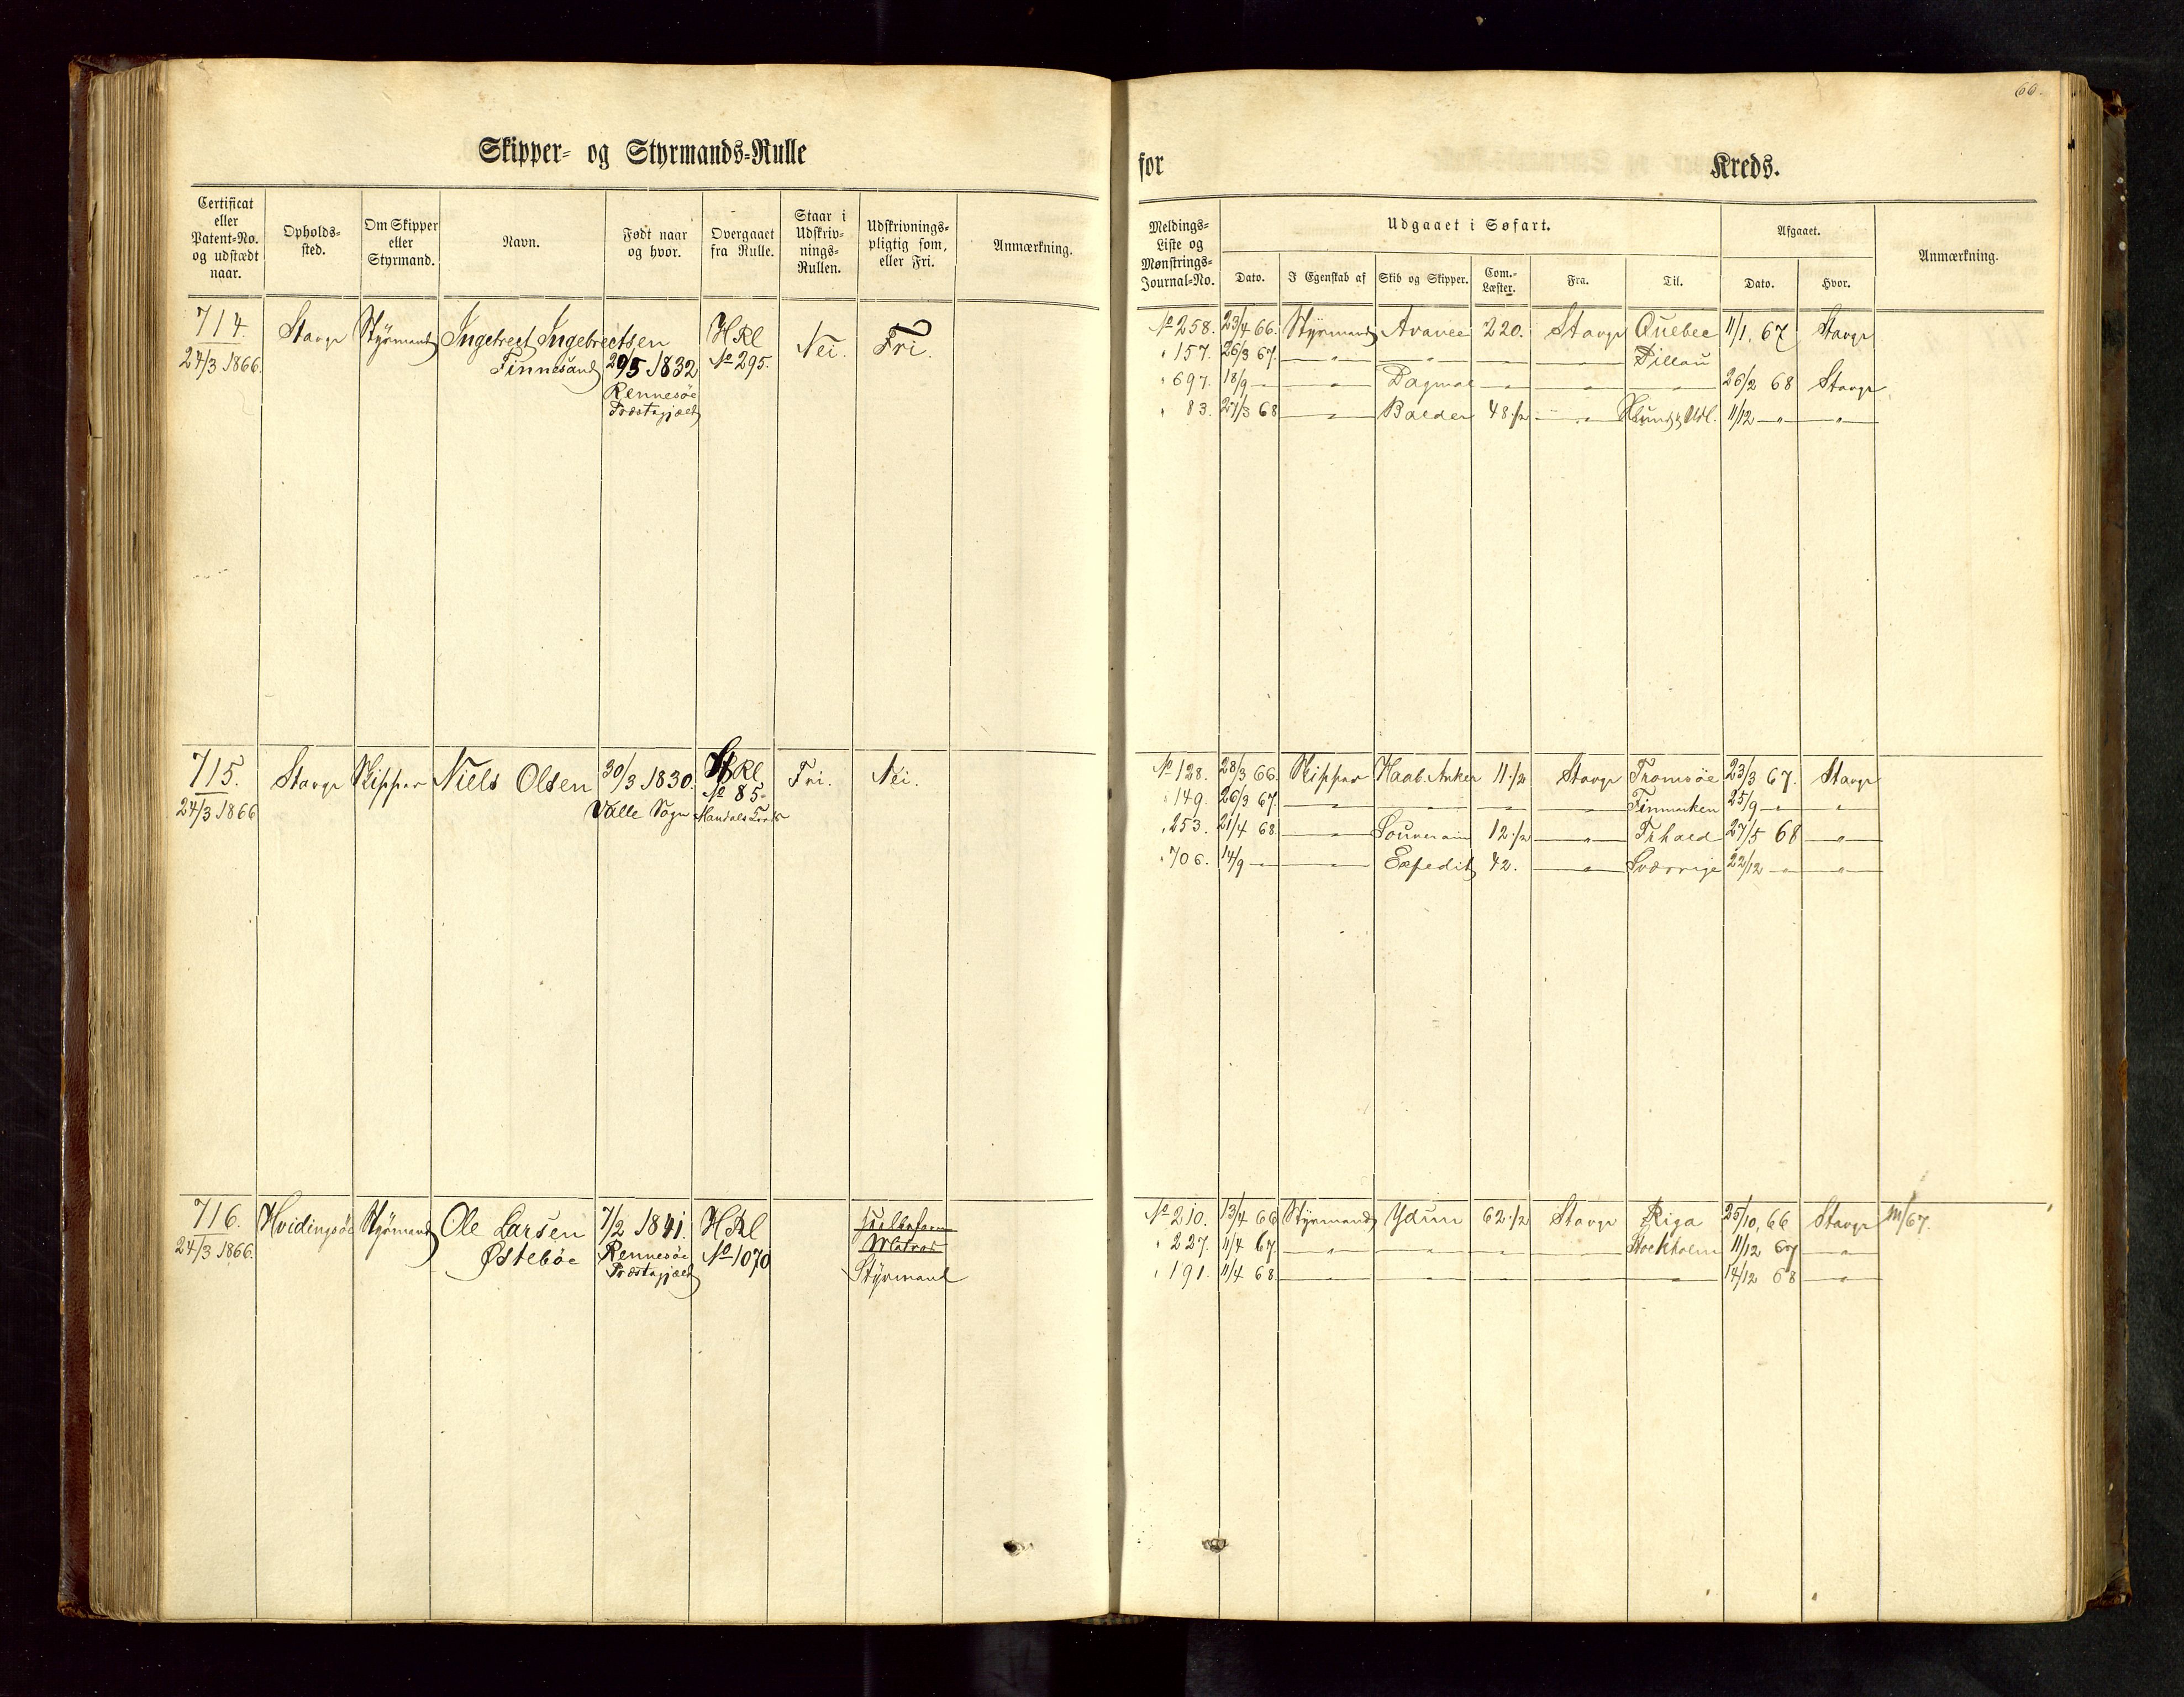 66.
Skipper- og Styrmands-Rulle
for Kreds.
Certificat eller Patent-No. og udstædt naar.
Opholds-sted.
Om Skipper eller Styrmand.
Navn.
Født naar og hvor.
Overgaaet fra Rulle.
Staar i Udskriv-nings-Rullen.
Udskrivnings-pligtig som, eller Fri.
Anmærkning.
Meldings-Liste og Mønstrings-Journal-No.
Udgaaet i Søfart.
Dato.
I Egenskab af
Skib og Skipper.
Com.-Læster.
Fra.
Til.
Afgaaet.
Dato.
Hvor.
Anmærkning.
714. Stavgr Styrmand Ingebrect Ingebrectsen HRl Nei. Fri.
24/3 1866. Finnesand 29/5 1832 No 295.
Rennesöe
Præstegjæld
No 258. 23/4 66. Styrmand Avance 220. Stavgr Quebec 11/1. 67 Stavgr
" 157. 26/3 67. — " — — " — — — Pillau
" 697. 18/9 — — " — Dagmar — " — — " — — " — 26/2 68 Stavgr
" 83. 27/3 68 — " — Balder 48 1/2 — " — 11/12 — " — — " —
715. Stavgr Skipper Niels Olsen 30/3 1830. No 85. Fri. Nei.
24/3 1866 Valle Sogn Mandals
No 128. 28/3 66. Skipper Haab. Anker 11 1/2 Stavgr Tromsöe 23/3 67. Stavgr
" 149. 26/3 67. — " — — " — — — Finmarken 25/9 — " — "
" 253. 21/4 68. — " — Souverain 12 1/2 — " — Frhald 27/5 68 — " —
" 706. 14/9 — — " — Expedit 42. — " — Sværrige 22/12 — " — — " —
716. Hvidingsöe Styrmand Ole Larsen 7/2 1841. HRl
24/3 1866. Östeböe Rennesöe No 1070 Matros
Præstegjæld Styrmand
No 210. 13/4 66 Styrmand Ydun 62 1/2 Stavgr Riga 25/10. 66 Stavgr
" 227. 11/4 67. — " — — " — — " — — " — Stockholm 11/12 67 — " —
" 191. 11/4 68. — — — — — 14/12 68 — " —